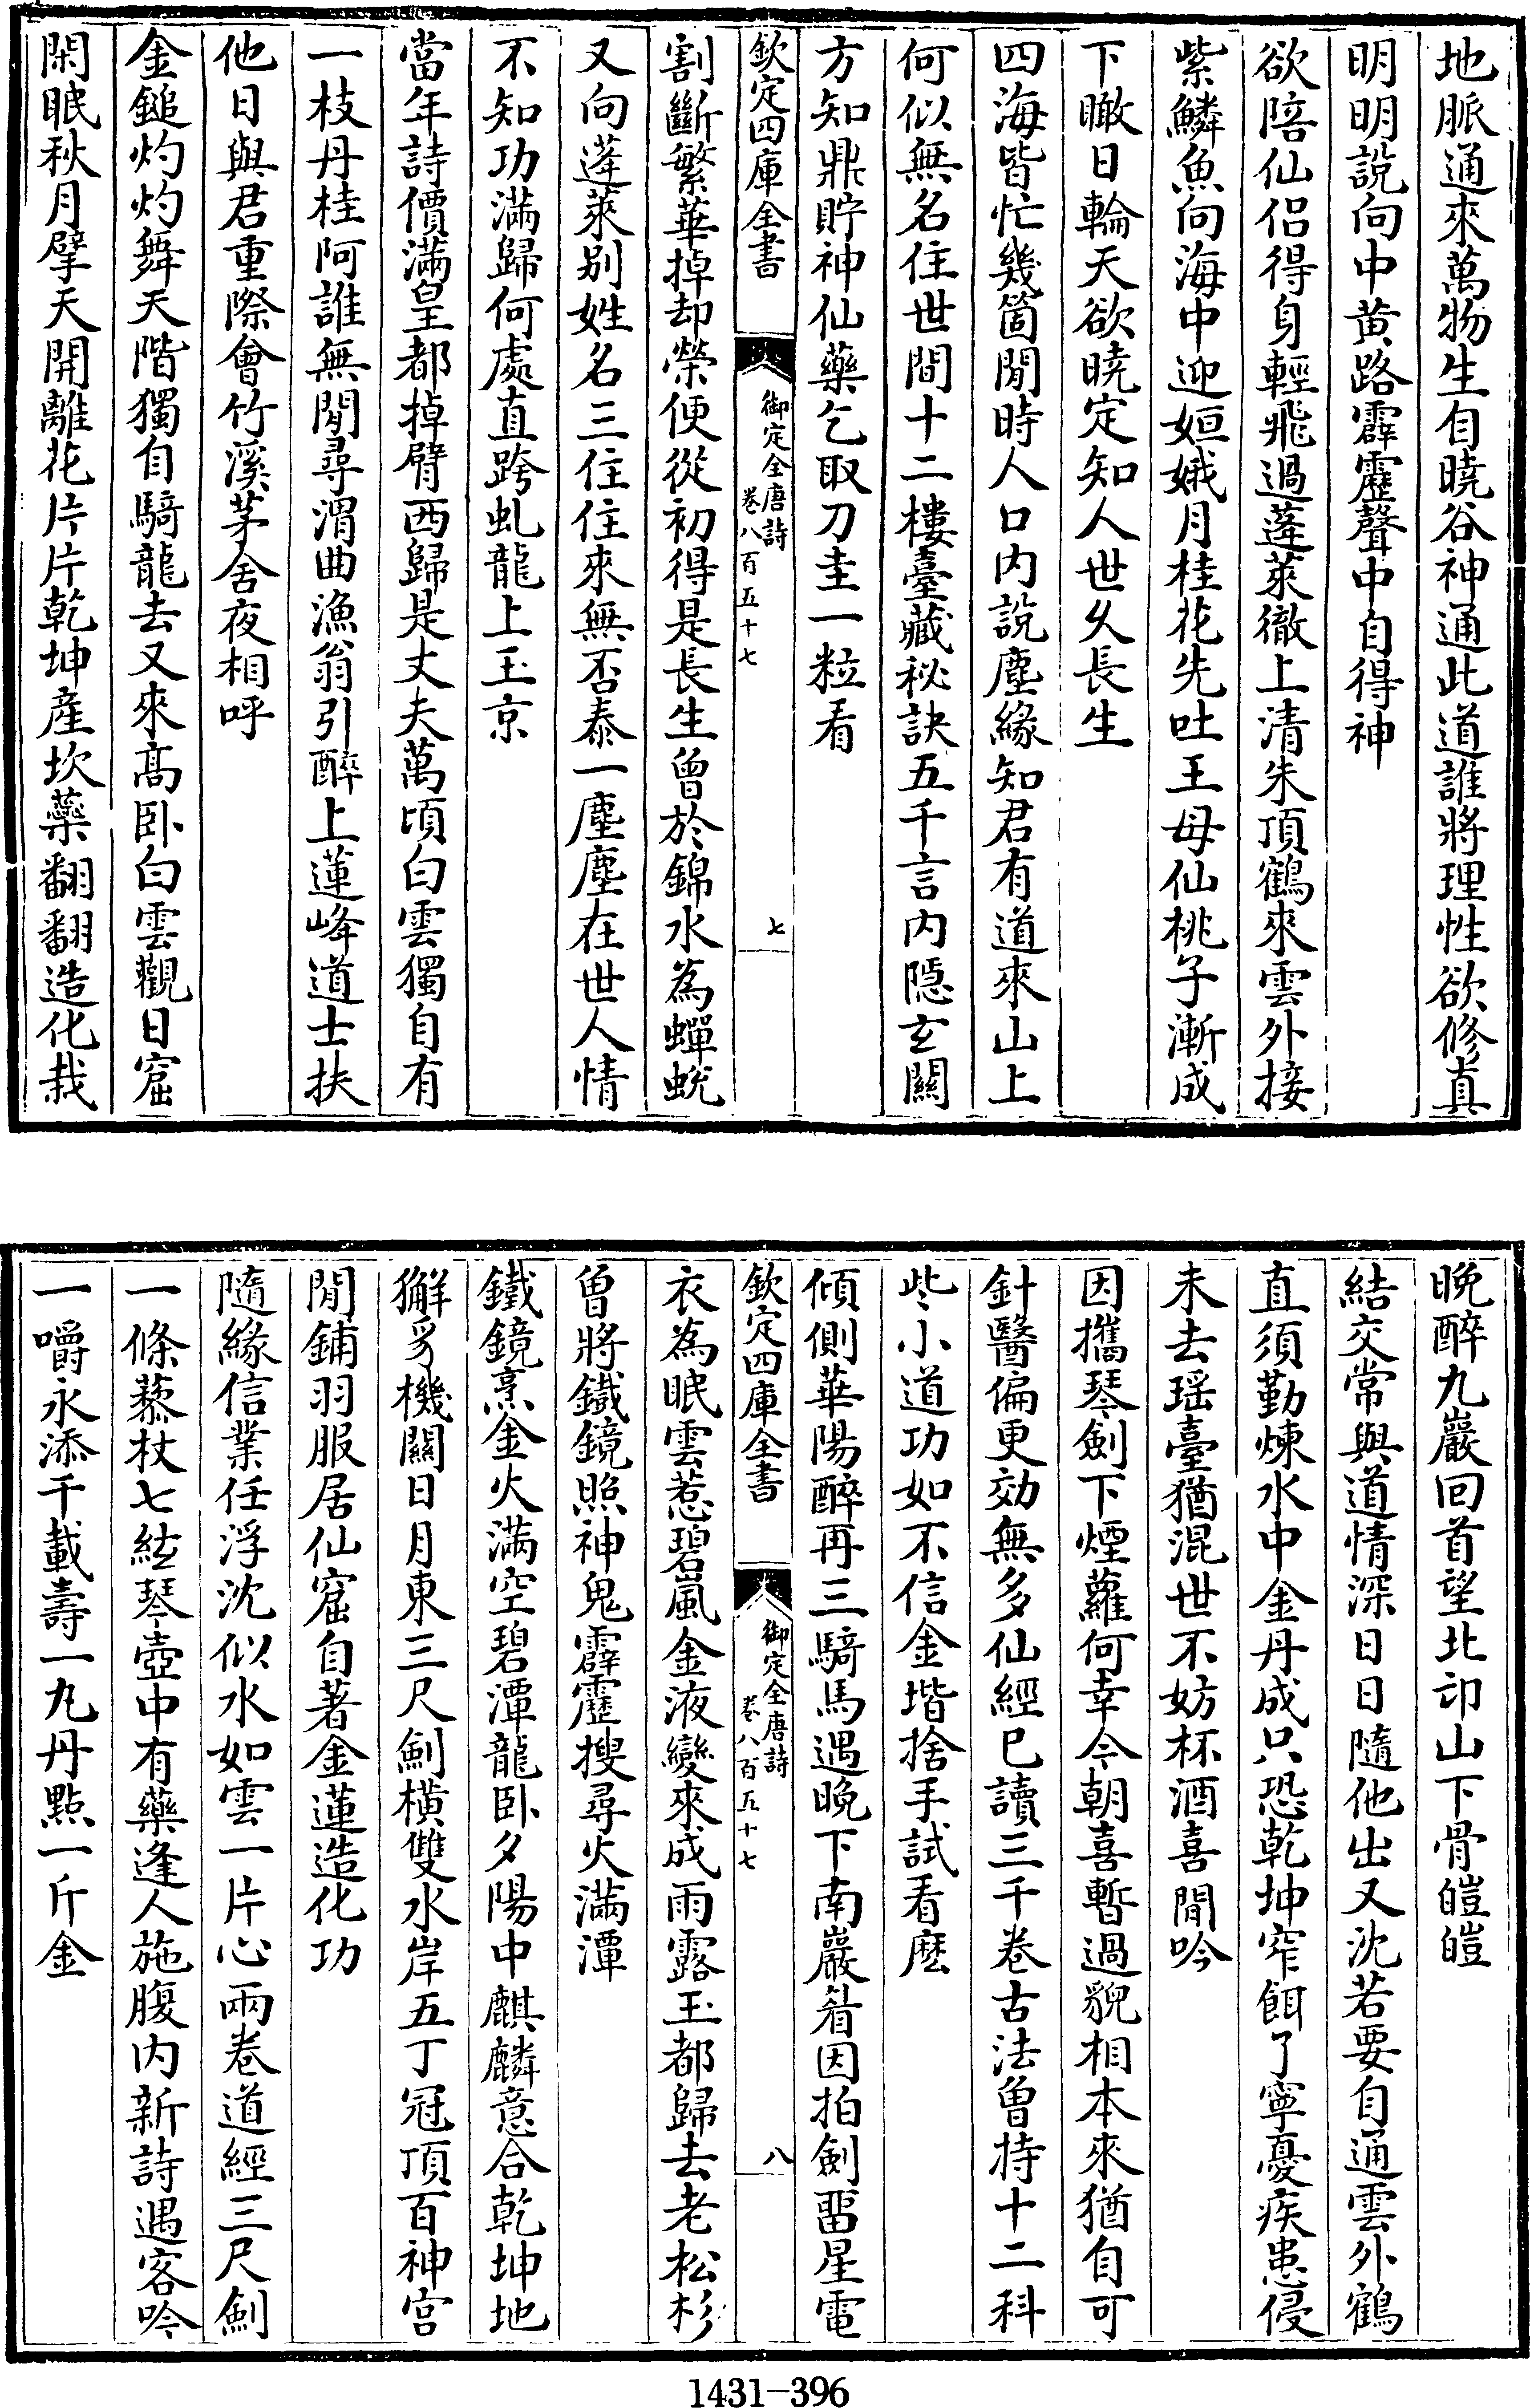 地脈通來萬物生自曉谷神通此道誰將理性欲修真
明明說向中黄路霹靂聲中自得神
欲陪仙侣得身輕飛過蓬萊徹上清朱頂鶴來雲外接
紫鱗魚向海中迎姮娥月桂花先吐王母仙桃子漸成
下瞰日輪天欲曉定知人世乆長生
四海皆忙幾箇閒時人口内說塵緣知君有道來山上
何似無名住世間十二樓臺藏秘訣五千言内隱玄關
方知鼎貯神仙藥乞取刀圭一粒看
欽定四庫全書
御定全唐詩
卷八百五十七
七
割斷繁華掉却榮便從初得是長生曾於錦水為蟬蛻
又向蓬萊别姓名三住住來無否泰一塵塵在世人情
不知功滿歸何處直跨虬龍上玉京
當年詩價滿皇都掉臂西歸是丈夫萬頃白雲獨自有
一枝丹桂阿誰無閒尋渭曲漁翁引醉上蓮峰道士扶
他日與君重際會竹溪茅舍夜相呼
金鎚灼灼舞天階獨自騎龍去又來高卧白雲觀日窟
閑眠秋月擘天開離花片片乾坤産坎藥翻翻造化栽
晚醉九巖回首望北邙山下骨皚皚
結交常與道情深日日隨他出又沈若要自通雲外鶴
直須勤煉水中金丹成只恐乾坤窄餌了寧憂疾患侵
未去瑶臺猶混世不妨杯酒喜閒吟
因攜琴劍下煙蘿何幸今朝喜暫過貌相本來猶自可
針醫偏更効無多仙經已讀三千卷古法曾持十二科
些小道功如不信金堦捨手試看麽
傾側華陽醉再三騎馬遇晚下南巖眉因拍劍留星電
欽定四庫全書
御定全唐詩
卷八百五十七
八
衣為眠雲惹碧嵐金液變來成雨露玉都歸去老松杉
曾將鐵鏡照神鬼霹靂搜尋火滿潭
鐵鏡烹金火滿空碧潭龍卧夕陽中麒麟意合乾坤地
獬豸機關日月東三尺劍横雙水岸五丁冠頂百神宫
閒鋪羽服居仙窟自著金蓮造化功
隨緣信業任浮沈似水如雲一片心兩卷道經三尺劍
一條藜杖七絃琴壺中有藥逢人施腹内新詩遇客吟
一嚼永添千載壽一丸丹點一斤金
1431-396